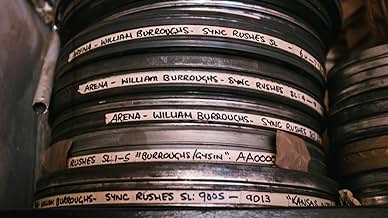 ARENA - WILLIAM BURROUGHS - SYNC RUSHES SL
ARENA - WILLIAM BURROUGHS - SYNC RUSHES SL:
ARENA - WILLIAM BURROUGHS - SYNC RUSHES
RUSHES SL:1-5 "BURROUGHS/GYSIN". AA0000
BURROUGHS - SYNC RUSHES SL: 9005 - 9013 "KANSAS